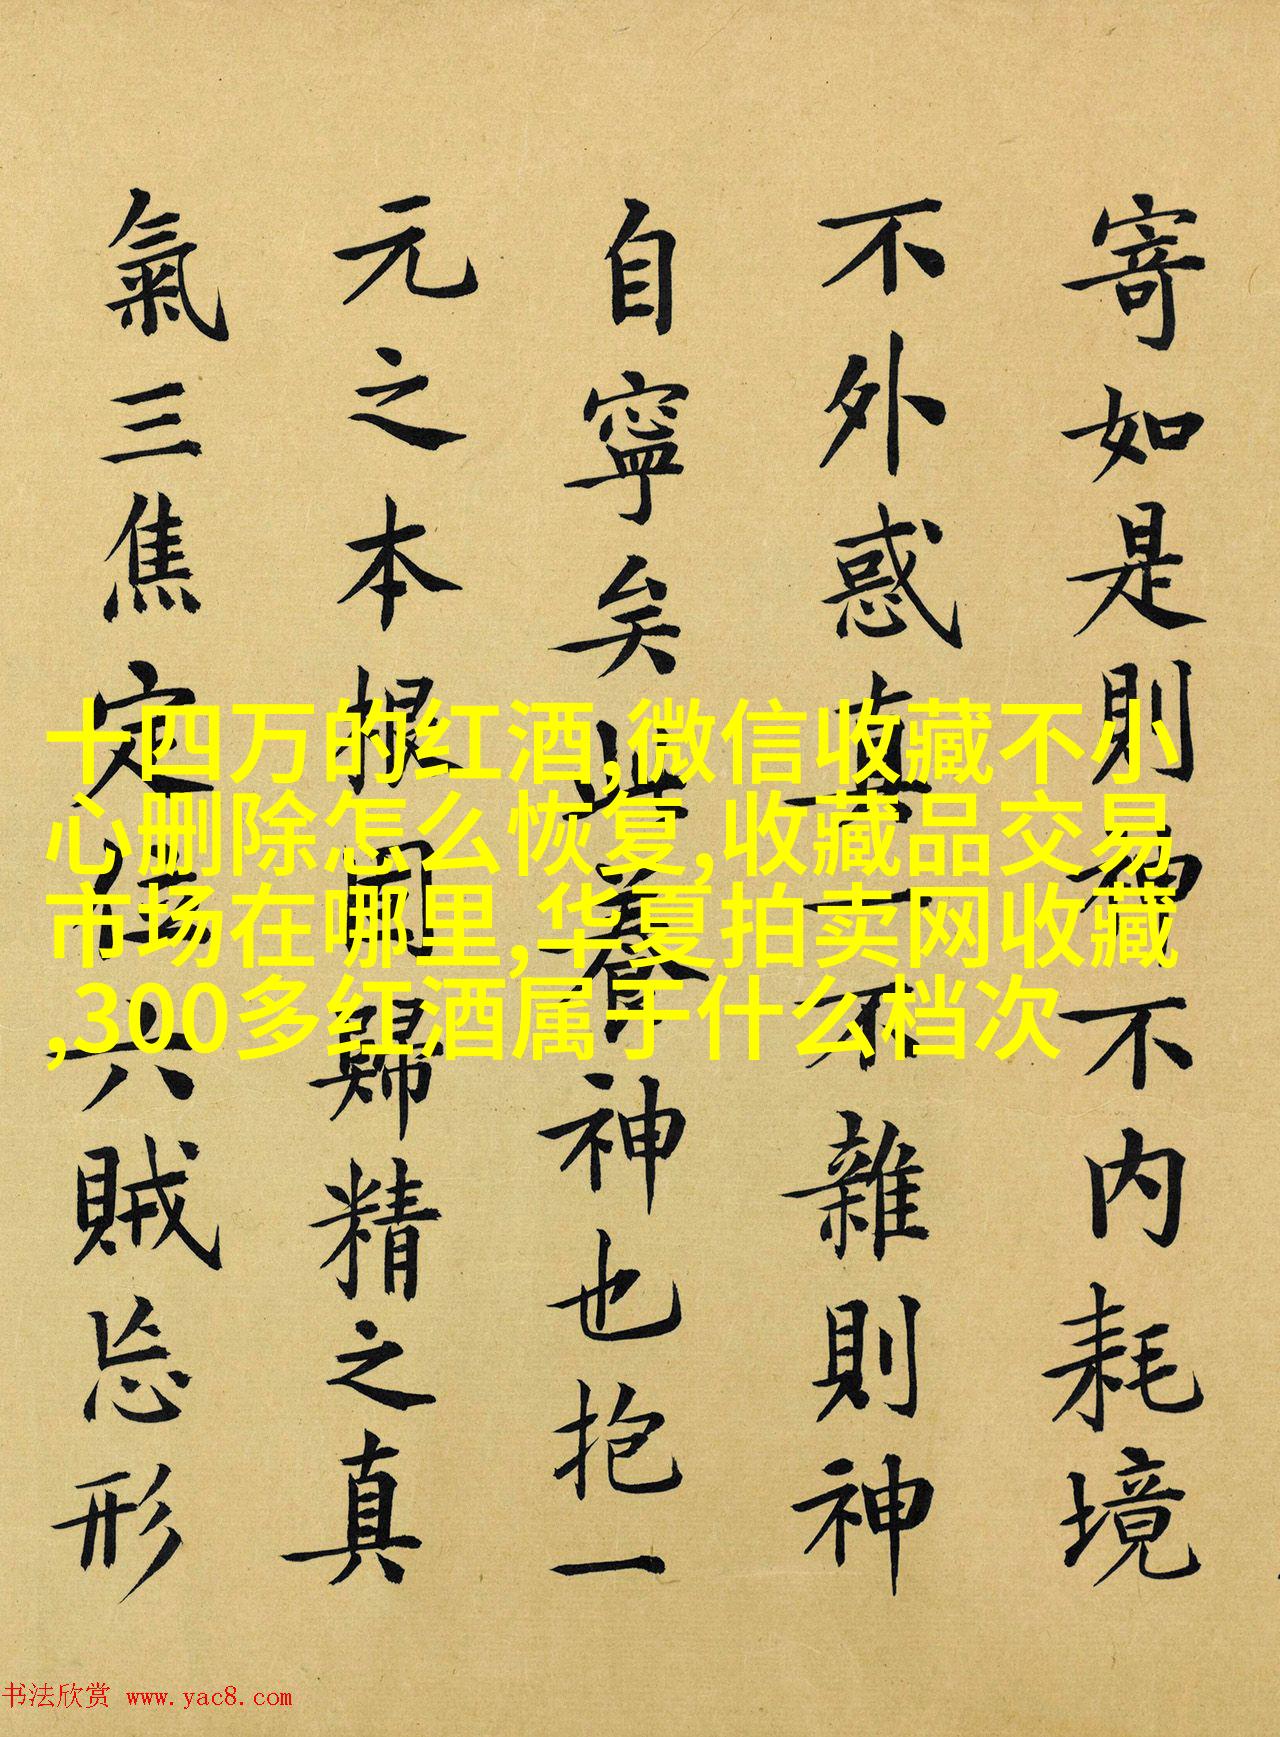 寄如是則神不内耗境
不外惑真一不雜則神
自寧矣此養神也抱一
元之本根固歸精之真
氣三焦定位六賊忘形
十四万的红酒,微信收藏不小
心删除怎么恢复,收藏品交易
市场在哪里,华夏拍卖网收藏
,300多红酒属于什么档次
书法欣赏 www.yac8.com